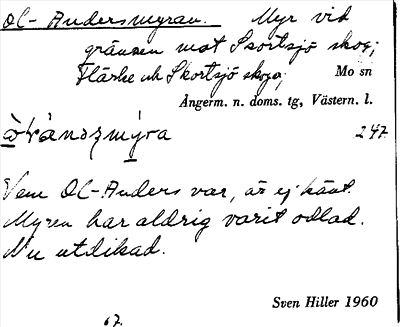 OL-Andersmyran. Myr vid
gränsen mot Skortsjö skog;
Flärke och Skortsjö skogs; Mo sn
Ångerm. n. doms. tg, Västern. l.
247.
Vem OL-Anders var, är ej känt.
Myren har aldrig varit odlad.
Nu utdikad.
Sven Hiller 1960
67.